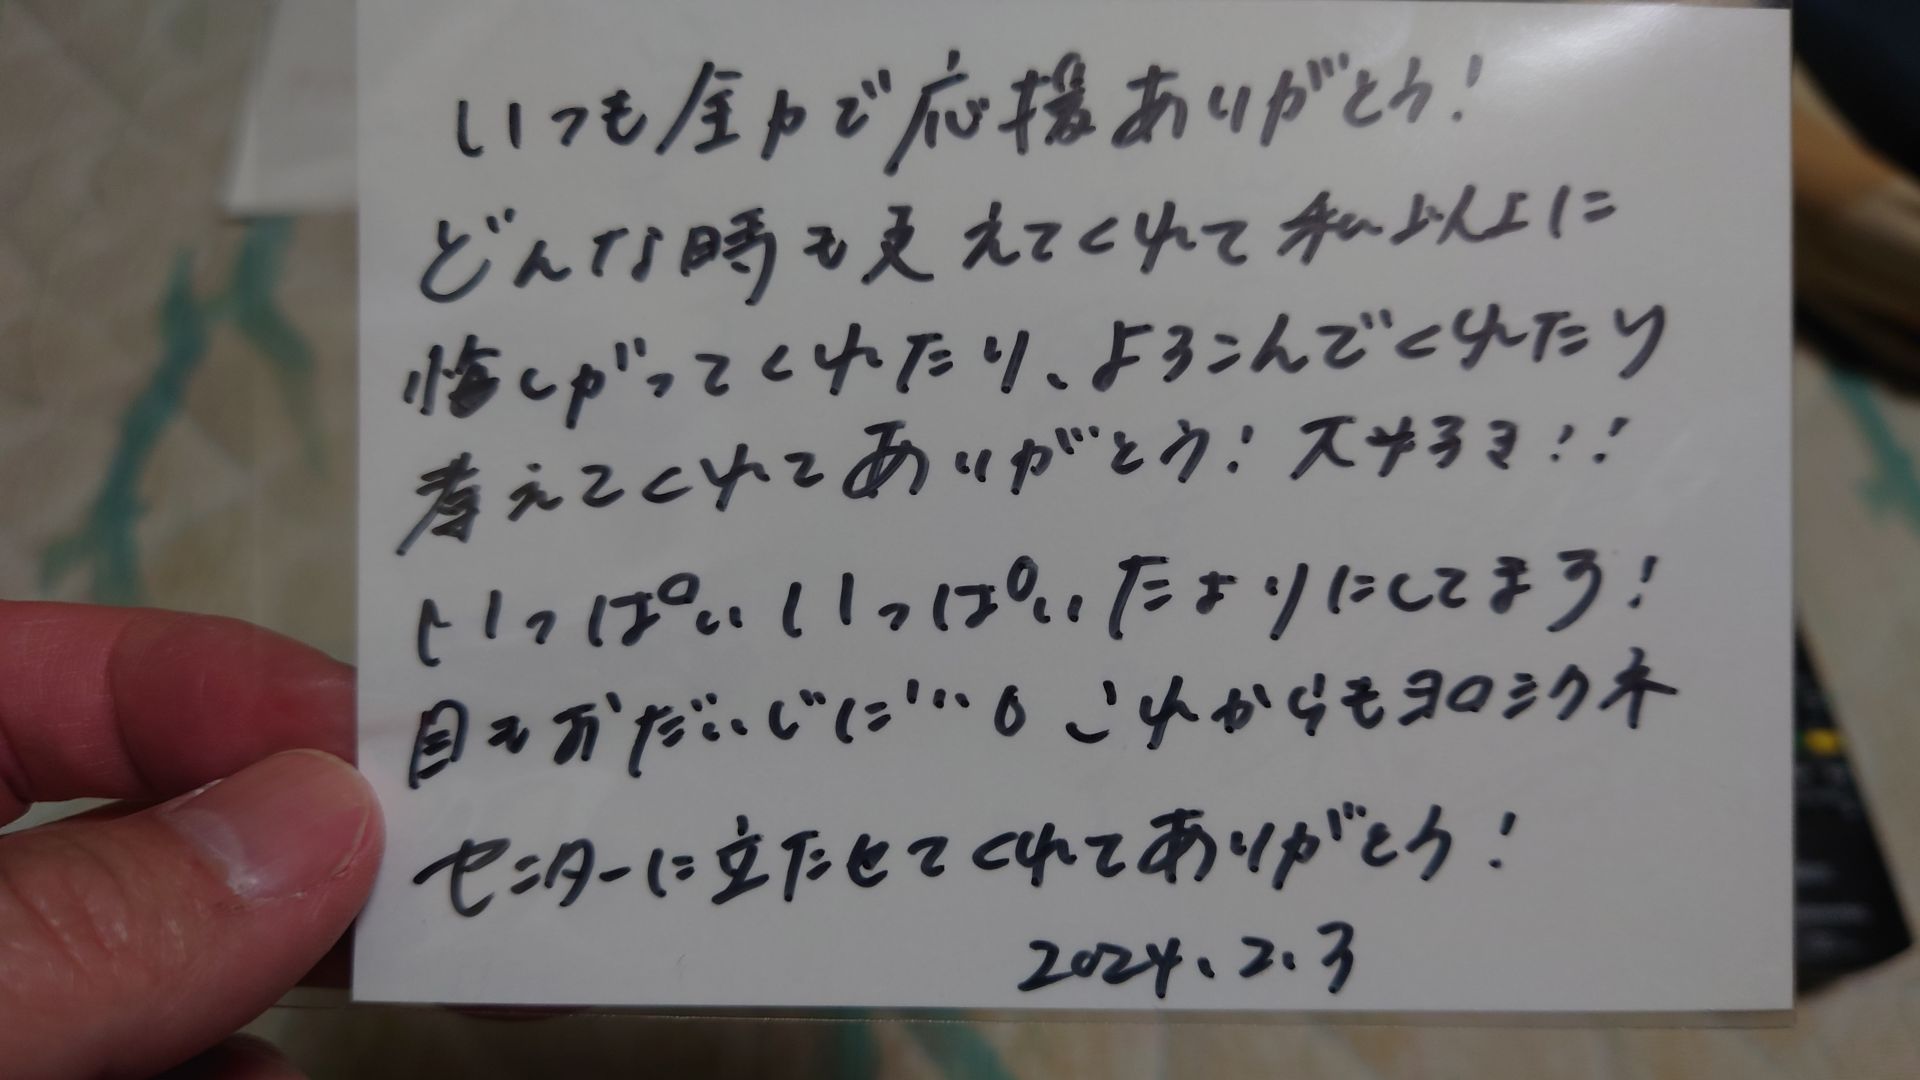 いつも全力で応援ありがとう!
どんな時も支えてくれて私以上に
悔しがってくれたり、よろこんでくれたり
考えてくれてありがとう!スキすぎ!!
いっぱいいっぱいたよりにしてまる!
目もおだいじに…。これからもヨロシクネ
センターに立たせてくれてありがとう!
2024.2.3